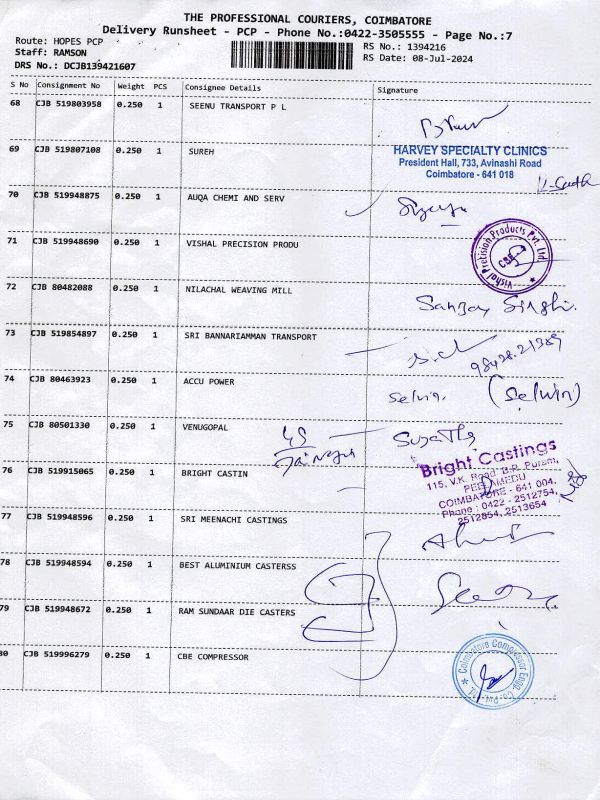 THE PROFESSIONAL COURIERS, COIMBATORE
Delivery Runsheet - PCP - Phone No.:0422-3505555 - Page No.:7
Route: HOPES PCP
RS No.: 1394216
Staff: RAMSON
RS Date: 08-Jul-2024
DRS No.: DCJB139421607
S No Consignment No Weight PCS Consignee Details Signature
68 CJB 519803958 0.250 1 SEENU TRANSPORT P L
69 CJB 519807108 0.250 1 SUREH
HARVEY SPECIALTY CLINICS
President Hall, 733, Avinashi Road
Coimbatore - 641 018
70 CJB 519948875 0.250 1 AUQA CHEMI AND SERV
71 CJB 519948690 0.250 1 VISHAL PRECISION PRODU
Vishal Precision Products Pvt. Ltd
CBE
72 CJB 80482088 0.250 1 NILACHAL WEAVING MILL
Sanjay Singh.
73 CJB 519854897 0.250 1 SRI BANNARIAMMAN TRANSPORT
74 CJB 80463923 0.250 1 ACCU POWER
Selvin. (Selwin)
75 CJB 80501330 0.250 1 VENUGOPAL
Sujatha
76 CJB 519915065 0.250 1 BRIGHT CASTIN
Bright Castings
115, V.K. Road, B.R. Puram,
PEELAMEDU
COIMBATORE - 641 004.
Phone : 0422 - 2512754,
2512854, 2513654
77 CJB 519948596 0.250 1 SRI MEENACHI CASTINGS
78 CJB 519948594 0.250 1 BEST ALUMINIUM CASTERSS
79 CJB 519948672 0.250 1 RAM SUNDAAR DIE CASTERS
80 CJB 519996279 0.250 1 CBE COMPRESSOR
Coimbatore Compressor Engg. Co. Pvt. Ltd.